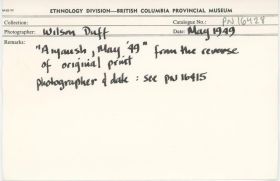 ETHNOLOGY DIVISION—BRITISH COLUMBIA PROVINCIAL MUSEUM
Collection: Catalogue No.: PN 16428
Photographer: Wilson Duff Date: May 1949
Remarks: "Anyaush, May '49" from the reverse
of original print
photographer & date : see PN 16415